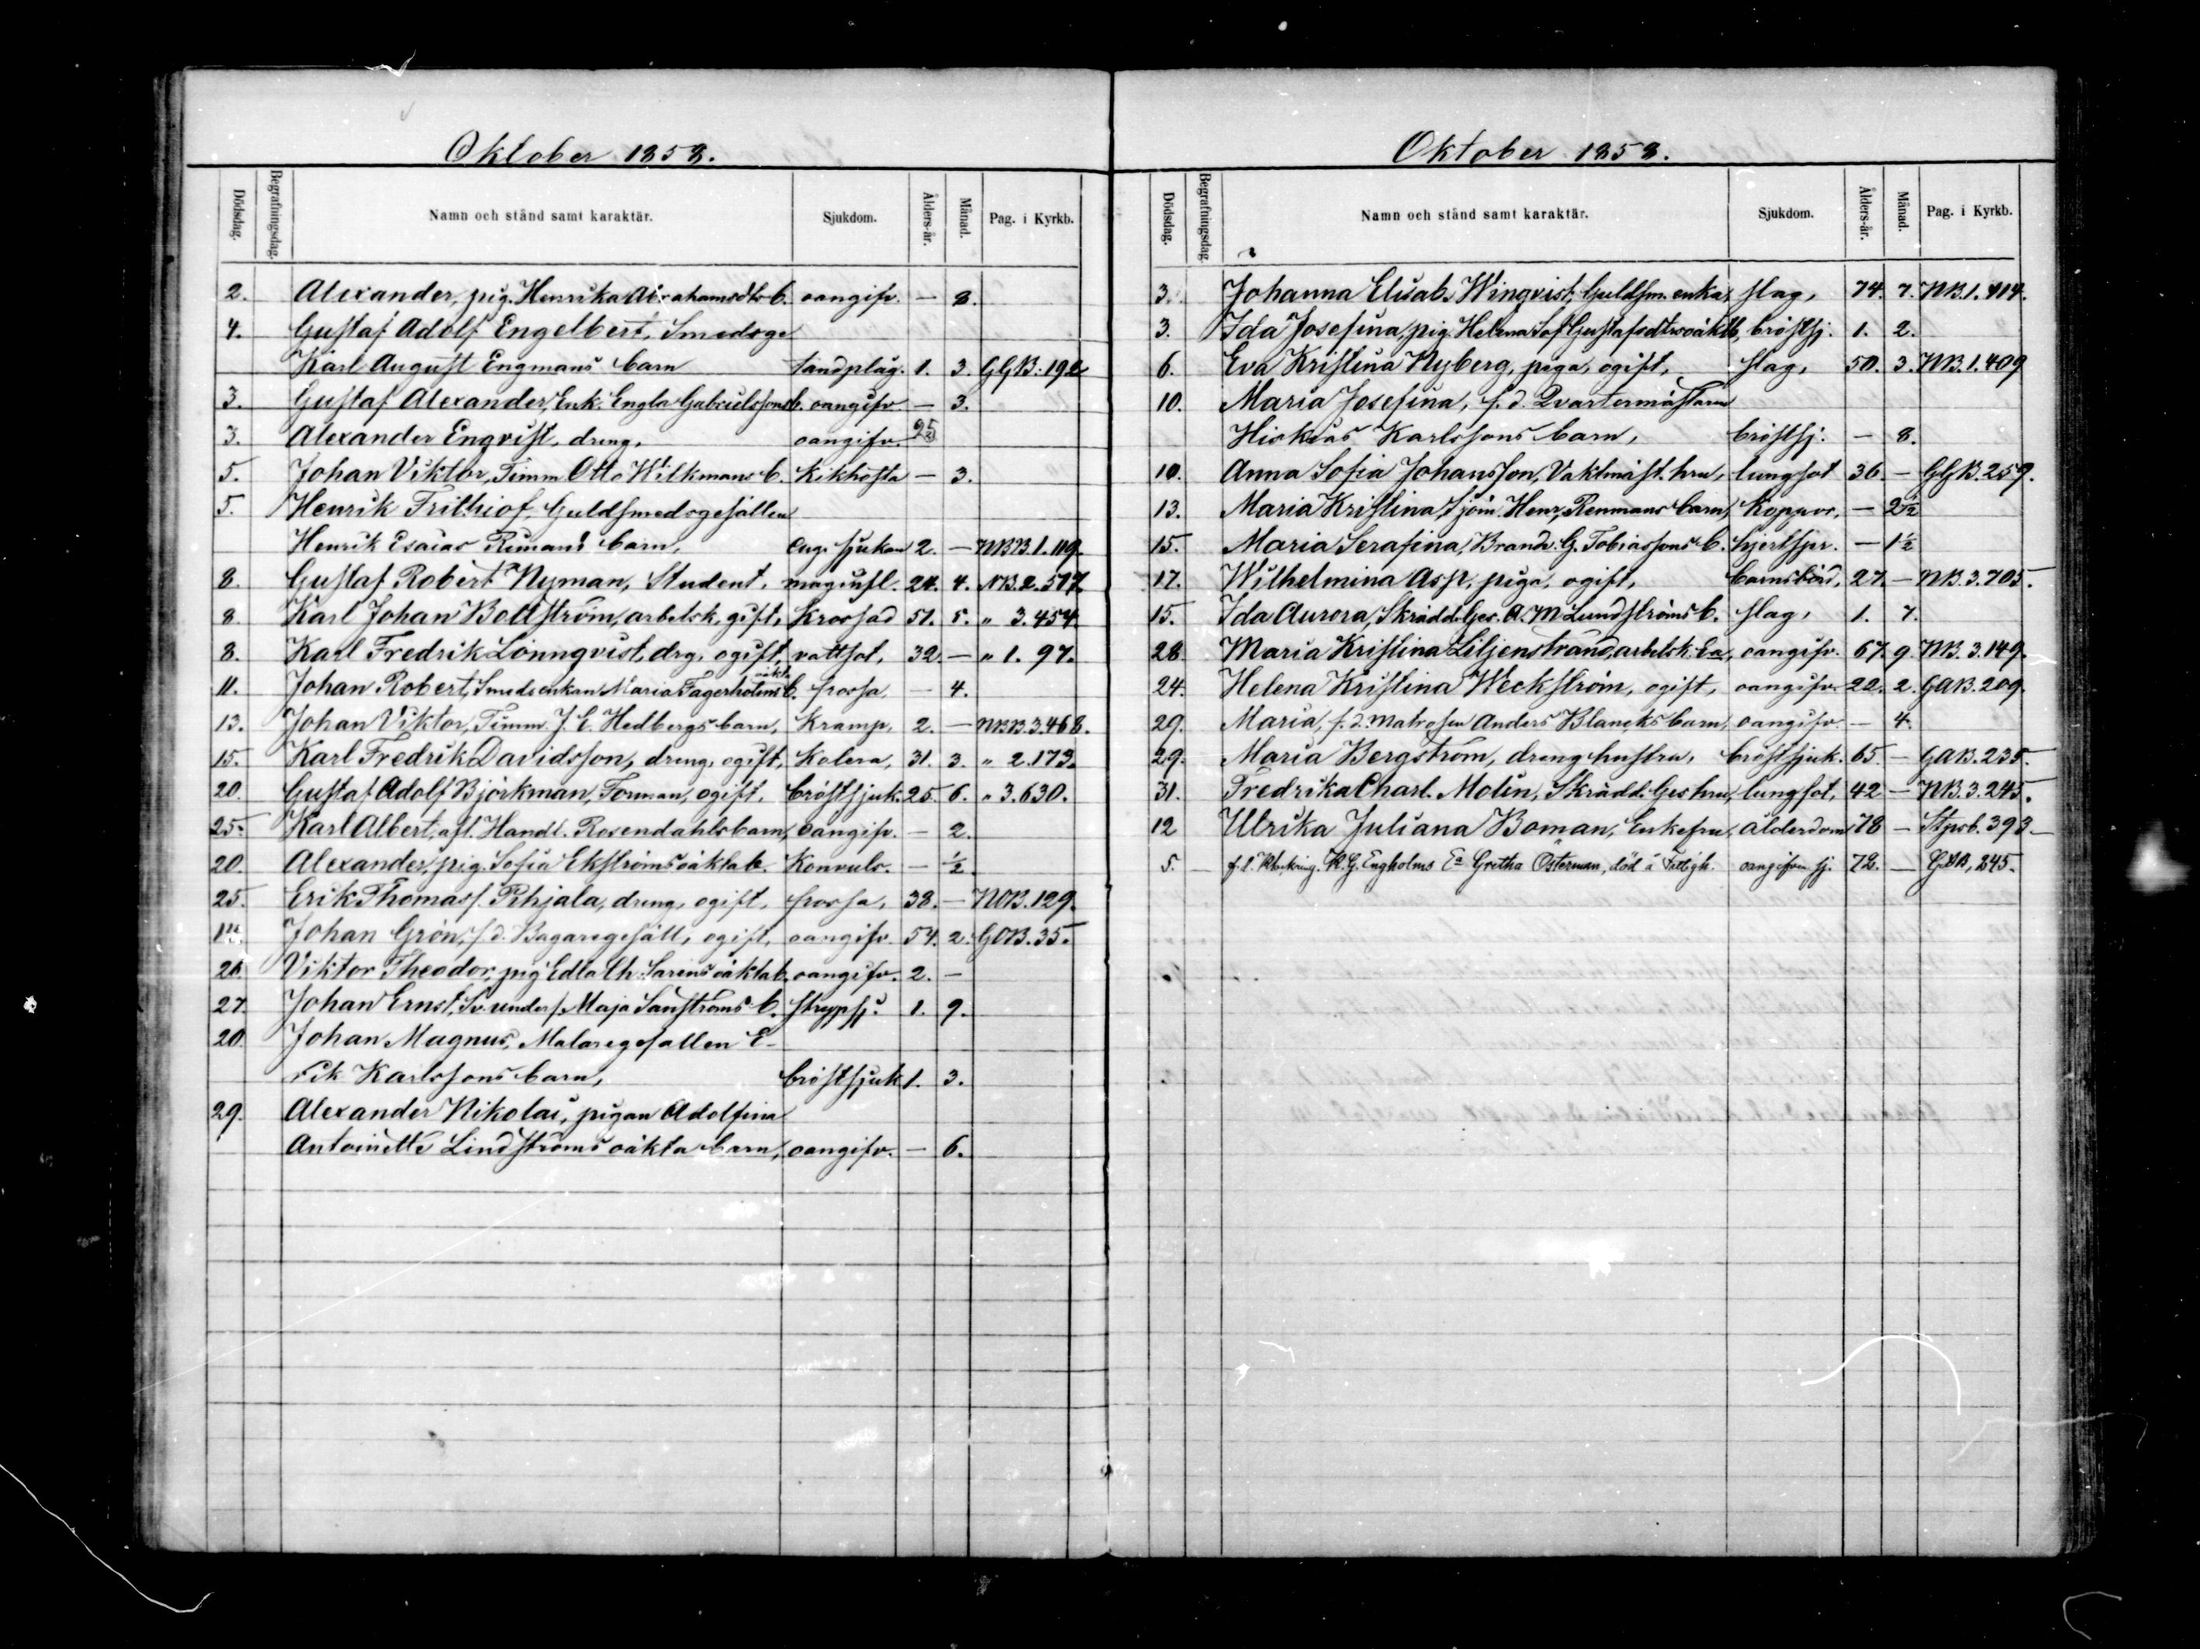 Oktober 1853.
Dödsdag. Begrafningsdag. Namn och stånd samt karaktär. Sjukdom. Ålders-år. Månad. Pag. i Kyrkb.
2. Alexander, pig. Henrika Abrahamsdtrs b. oangifv. — 8.
4. Gustaf Adolf Engelbert, Smedsge
Karl August Engmans barn tandplåg. 1. 3. GGB. 192
3. Gustaf Alexander, Enk. Engla Gabrielssons b. oangifv. — 3.
3. Alexander Engvist, dreng, oangifv. 25
5. Johan Viktor, Timm. Otto Wilkmans b. Kikhosta — 3.
5. Henrik Frithiof, Guldsmedsgesällen
Henrik Esaias Rimans barn, eng. sjukan 2. — NBB. 1. 119.
8. Gustaf Robert Nyman, Student, 24. 4. NB. 2. 517.
8. Karl Johan Boltström, arbetsk, gift, Krossad 51. 5. „ 3. 454.
8. Karl Fredrik Lönnqvist, drg, ogift, vattsot, 32. — „ 1. 97.
11. Johan Robert, Smedsenkan Maria Fagerholms oäkta b. frossa, — 4.
13. Johan Viktor, Timm. J. E. Hedbergs barn, Kramp, 2. — NBB. 3. 468.
15. Karl Fredrik Davidsson, dreng, ogift, Kolera, 31. 3. „ 2. 173.
20. Gustaf Adolf Björkman, Forman, ogift, bröstsjuk. 25. 6. „ 3. 630.
25. Karl Albert, afl. Handl. Rosendahls barn, oangifv. — 2.
20. Alexander, pig. Sofia Ekströms oäkta b. Konvuls. — ½.
25. Erik Thomass. Pihjala, dreng, ogift, frossa, 38. — NOB. 129.
Johan Grön, f. d. Bagaregesäll, ogift, oangifv. 54. 2. GOB. 35.
Viktor Theodor, pig Edla Ch. Sarens oäkta b. oangifv. 2. —
27. Johan Ernst, Sv. unders. Maja Sanströms b. strypsj. 1. 9.
20. Johan Magnus, Malaregesällen E-
rik Karlssons barn, bröstsjuk 1. 3.
29. Alexander Nikolai, pigan Adolfina
Antoinette Lindströms oäkta barn, oangifv. — 6.
Oktober 1853.
Dödsdag. Begrafningsdag. Namn och stånd samt karaktär. Sjukdom. Ålders-år. Månad. Pag. i Kyrkb.
3. Johanna Elisab. Winqvist, Guldsm. enka, slag, 74. 7. NB. 1. 414.
3. Ida Josefina, pig. Helena Sof. Gustafsdtrs oäkt b, bröstsj. 1. 2.
6. Eva Kristina Nyberg, piga, ogift, slag, 50. 3. NB. 1. 409
10. Maria Josefina, f. d. Qvartermästarn
Hiskias Karlssons barn, bröstsj. — 8.
10. Anna Sofia Johansson, Vaktmäst. hru, lungsot 36. — GGB. 259.
13. Maria Kristina, Sjöm. Henr. Renmans barn, Koppor, — 2½
15. Maria Serafina, Brandv. G. Tobiassons b. hjertspr. — 1½
17. Wilhelmina Asp, piga, ogift, barnsbörd, 27. — NB. 3. 705.
15. Ida Aurora, Skrädd. Ges. A. M. Lundströms b. slag, 1. 7.
28. Maria Kristina Liljenstrand, arbetsk. Ea, oangifv. 67. 9. NB. 3. 149.
24. Helena Kristina Weckström, ogift, oangifv. 22. 2. GAB. 209.
29. Maria, f. d. Matrosen Anders Blancks barn, oangifv. — 4.
29. Maria Bergström, dreng hustru, bröstsjuk. 65. — GAB. 235.
31. Fredrika Charl. Molin, Skrädd. Ges hru, lungsot, 42 — NB. 3. 245.
12 Ulrika Juliana Boman, Enkefru, ålderdom 78 — Stpsb. 393.—
5. — K. G. Engholms Ea Gretha Österman, död å Fattigh. oangifven sj. 72. — GAB, 245.